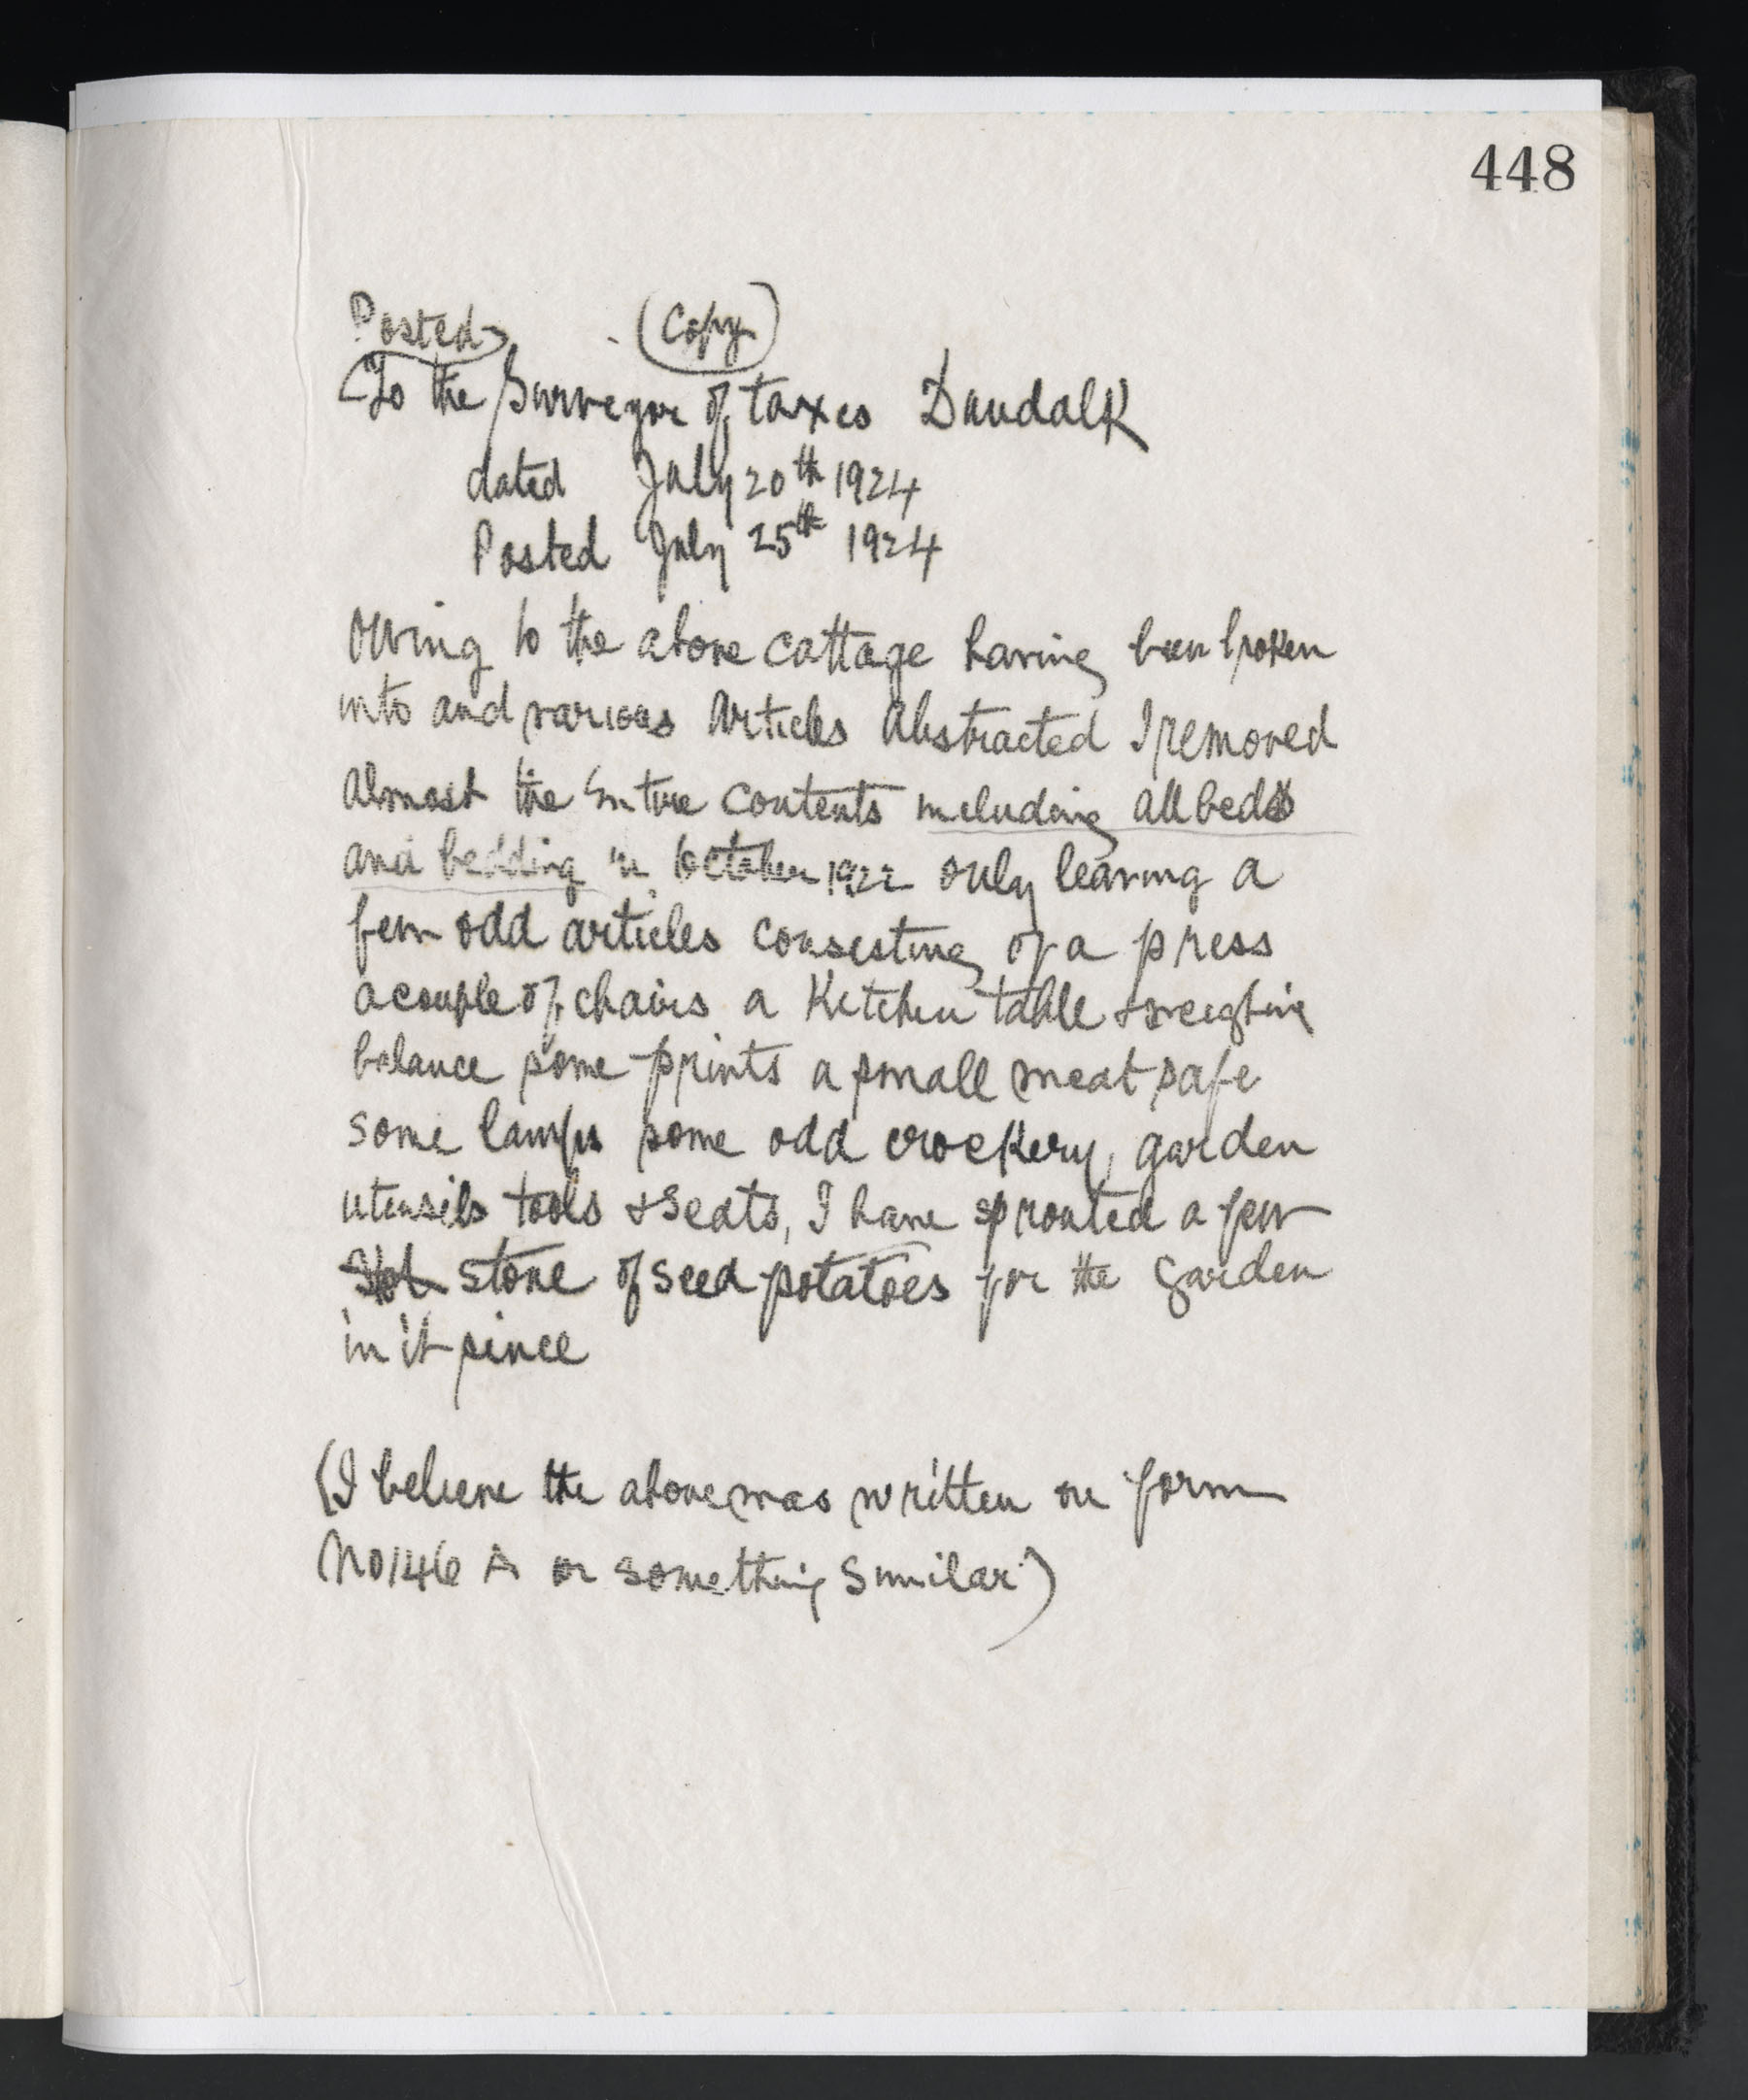 448
Posted (Copy)
To the Surveyor of taxes Dundalk
dated July 20th 1924
Posted July 25th 1924
Owing to the above cottage having been broken
into and various Articles Abstracted I removed
Almost the Entire contents including all beds
and bedding in October 1922 only leaving a
few odd articles consisting of a press
a couple of chairs a Kitchen table & weighing
balance some prints a small meat safe
some lamps some odd crockery, garden
utensils tools & seats, I have sprouted a few
stone of seed potatoes for the garden
in it since
(I believe the above was written on form
No 146 A or something similar)